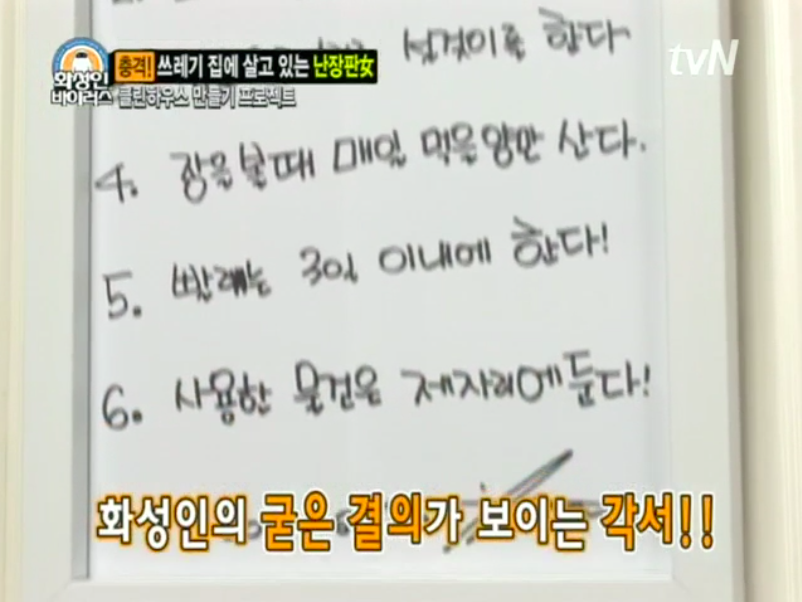 설겆이를 한다
tvN
화성인 바이러스
충격! 쓰레기 집에 살고 있는 난장판女
클린하우스 만들기 프로젝트
4. 장을볼때 매일 먹을양만 산다.
5. 빨래는 3일 이내에 한다!
6. 사용한 물건은 제자리에둔다!
화성인의 굳은 결의가 보이는 각서!!